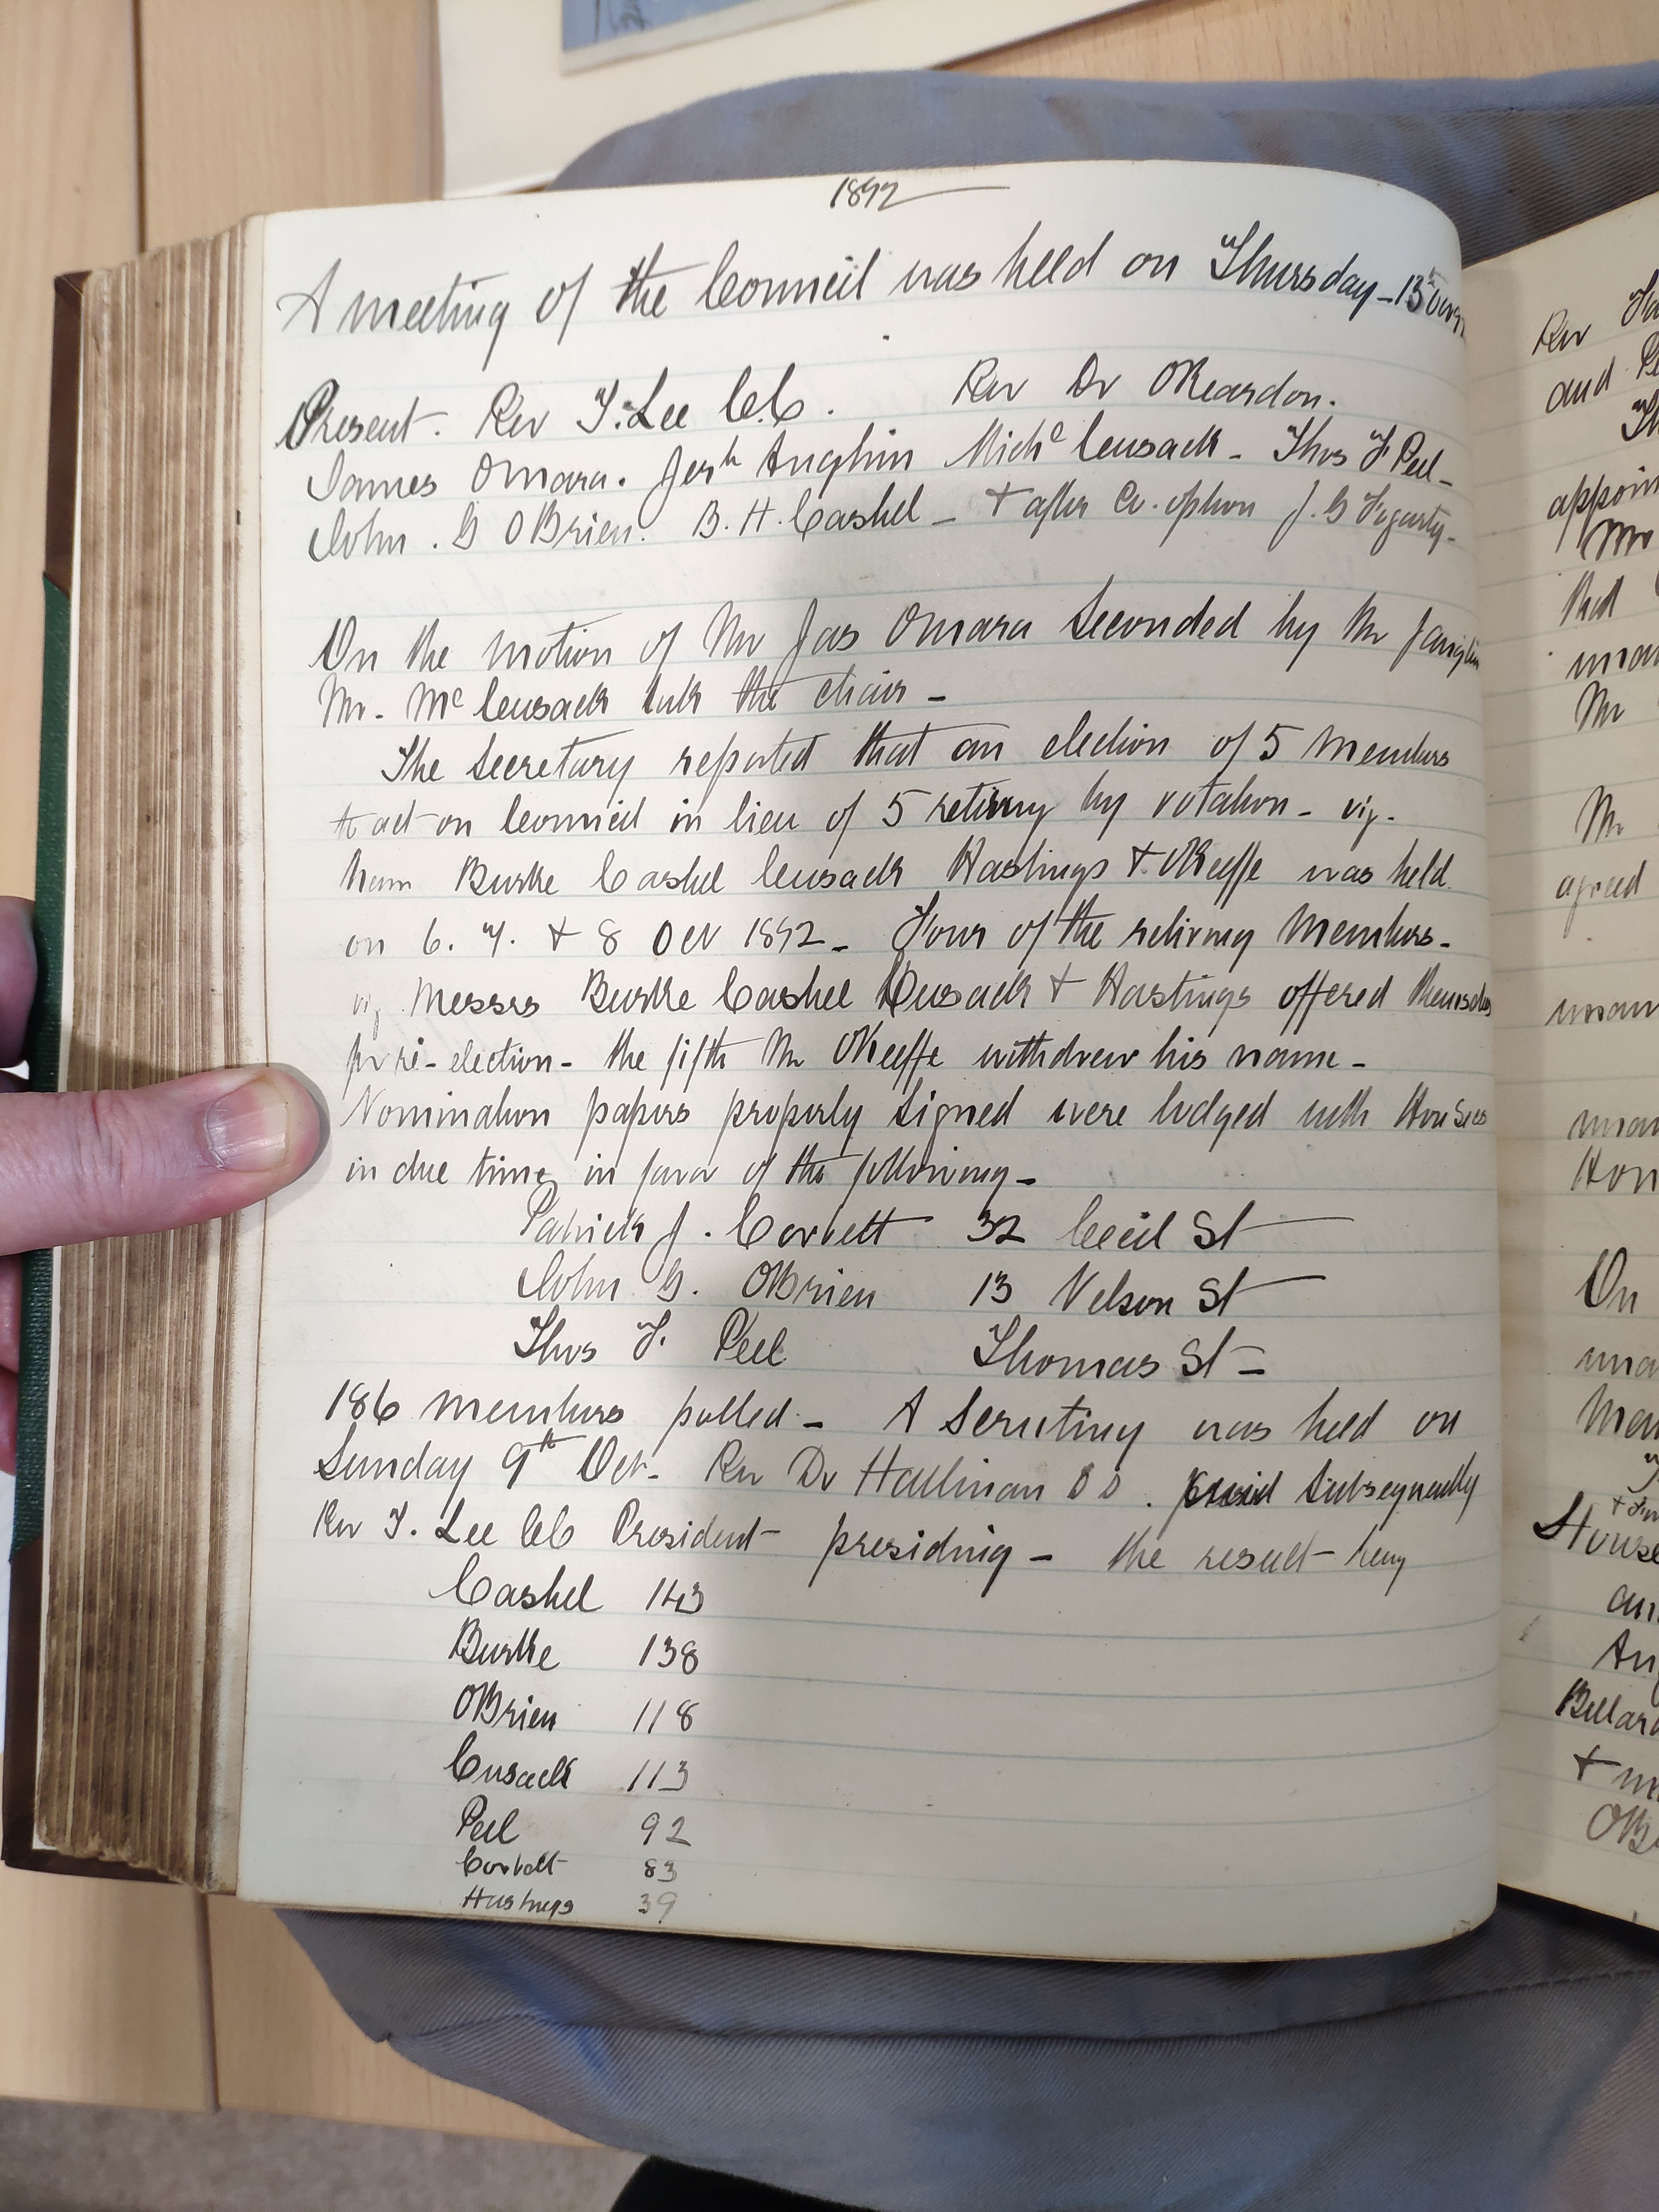 1892
A meeting of the Council was held on Thursday - 13th Oct 92
Present. Rev T. Lee C.C. Rev Dr O'Reardon.
James O'Mara. Jos'h Anglim Mich'l Cusack - Thos F Peel -
John. G O'Brien. B. H. Cashel - + after Co. option J. G Fogarty -
On the motion of Mr Jas O'Mara seconded by Mr J Anglim
Mr. Mc Cusack took the chair -
The Secretary reported that an election of 5 members
to act on Council in lieu of 5 retiring by rotation - viz.
Burke Cashel Cusack Hastings + O'Keeffe was held
on 6. 7. + 8 Oct 1892 - Four of the retiring members -
viz Messrs Burke Cashel Cusack + Hastings offered themselves
for re-election - the fifth Mr O'Keeffe withdrew his name -
Nomination papers properly signed were lodged with Hon Sec
in due time in favor of the following -
Patrick J. Corbett 32 Cecil St
John G. O'Brien 13 Nelson St
Thos F. Peel Thomas St -
186 members polled - A Scrutiny was held on
Sunday 9th Oct - Rev Dr Hallinan subsequently
Rev T. Lee CC President presiding - the result being
Cashel 143
Burke 138
O'Brien 118
Cusack 113
Peel 92
Corbett 83
Hastings 39
Rev
and
appoin
Mr
that
Mr
Mr
agreed
On
House
+